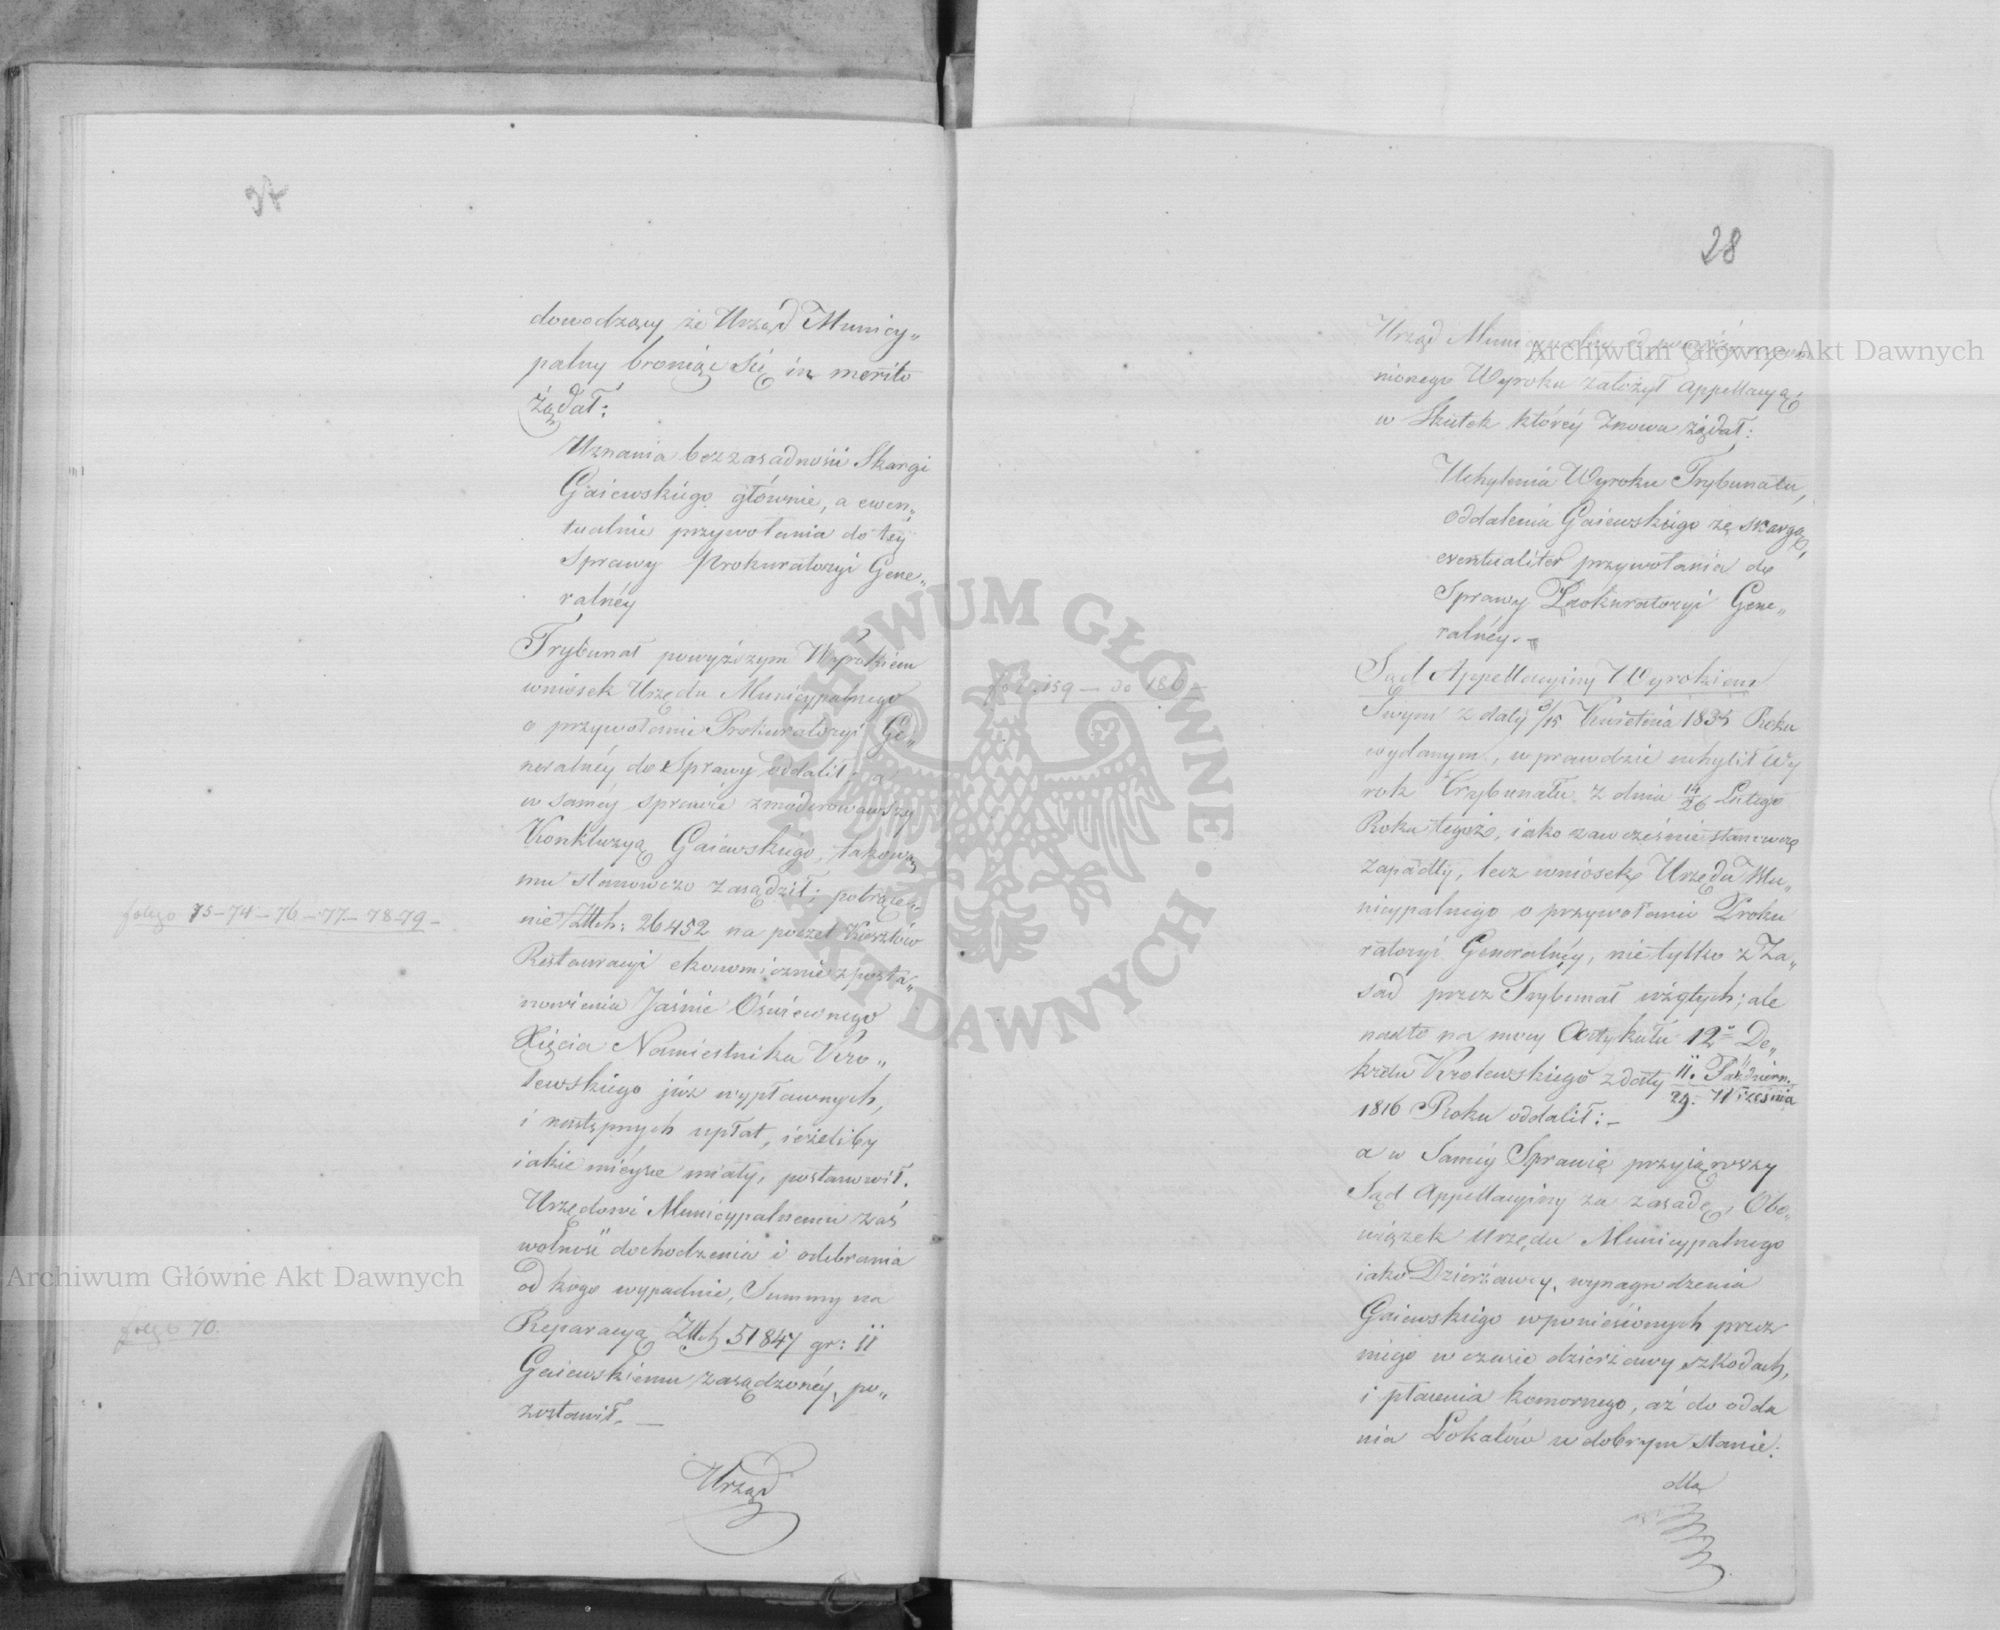 dowodzący że Urząd Municy„
palny broniąc się in merito
żądał:
Uznania bezzasadności Skargi
Gaiewskiego głównie, a ewen„
tualnie przywołania do téy
Sprawy Prokuratoryi Gene„
ralnéy
Trybunał powyższym Wyrokiem
wniosek Urzędu Municypalnego
o przywołanie Prokuratoryi Ge„
neralnéy do Sprawy oddalił; a
w saméy sprawie zmoderowawszy
Konkluzyą Gaiewskiego, takową
mu stanowczo zasądził; potrące„
nie Złłch: 26452 na poczet Kosztów
folego 75-74-76-77-78-79-
Restauracyi ekonomicznie z posta„
nowienia Jaśnie Oświeconego
Xięcia Namiestnika Kró„
lewskiego już wypłaconych,
i następnych upłat, ieżeliby
iakie mieysce miały, postanowił.
Urzędowi Municypalnemu zaś
wolność dochodzenia i odebrania
od kogo wypadnie, Summy na
Reparacyą Złłch 51847 gr: 11
fol: 70.
Gaiewskiemu zasądzonéy, po„
zostawił. —
Urząd
28
Urząd Municypalny od powyż
nionego Wyroku założył Appellacyą,
w Skutek któréy znowu żądał:
Uchylenia Wyroku Trybunału,
oddalenia Gaiewskiego ze skargą,
eventualiter przywołania do
Sprawy Prokuratoryi Gene„
ralnéy. -
Sąd Appellacyiny Wyrokiem
fol: 159 — do 186 —
Swym z daty 3/15 Kwietnia 1835 Roku
wydanym, wprawdzie uchylił Wy
rok Trybunału z dnia 14/26 Lutego
Roku tegoż, iako zawcześnie stanowczo
zapadły, lecz wniosek Urzędu Mu„
nicypalnego o przywołanie Proku
ratoryi Generalnéy, nie tylko z Za„
sad przez Trybunał wziętych; ale
nadto na mocy Artykułu 12o De„
kretu Królewskiego z daty 11. Październ./29. Września
1816 Roku oddalił: -
a w Saméy Sprawie przyiąwszy
Sąd Appellacyiny za zasadę, Obo„
wiązek Urzędu Municypalnego
iako Dzierżawcy, wynagrodzenia
Gaiewskiego w poniesionych przez
niego w czasie dzierżawy szkodach,
i płacenia komornego, aż do odda
nia Lokalów w dobrym stanie:
dla
Archiwum Główne Akt Dawnych
Archiwum Główne Akt Dawnych
ARCHIWUM GŁÓWNE · AKT DAWNYCH ·